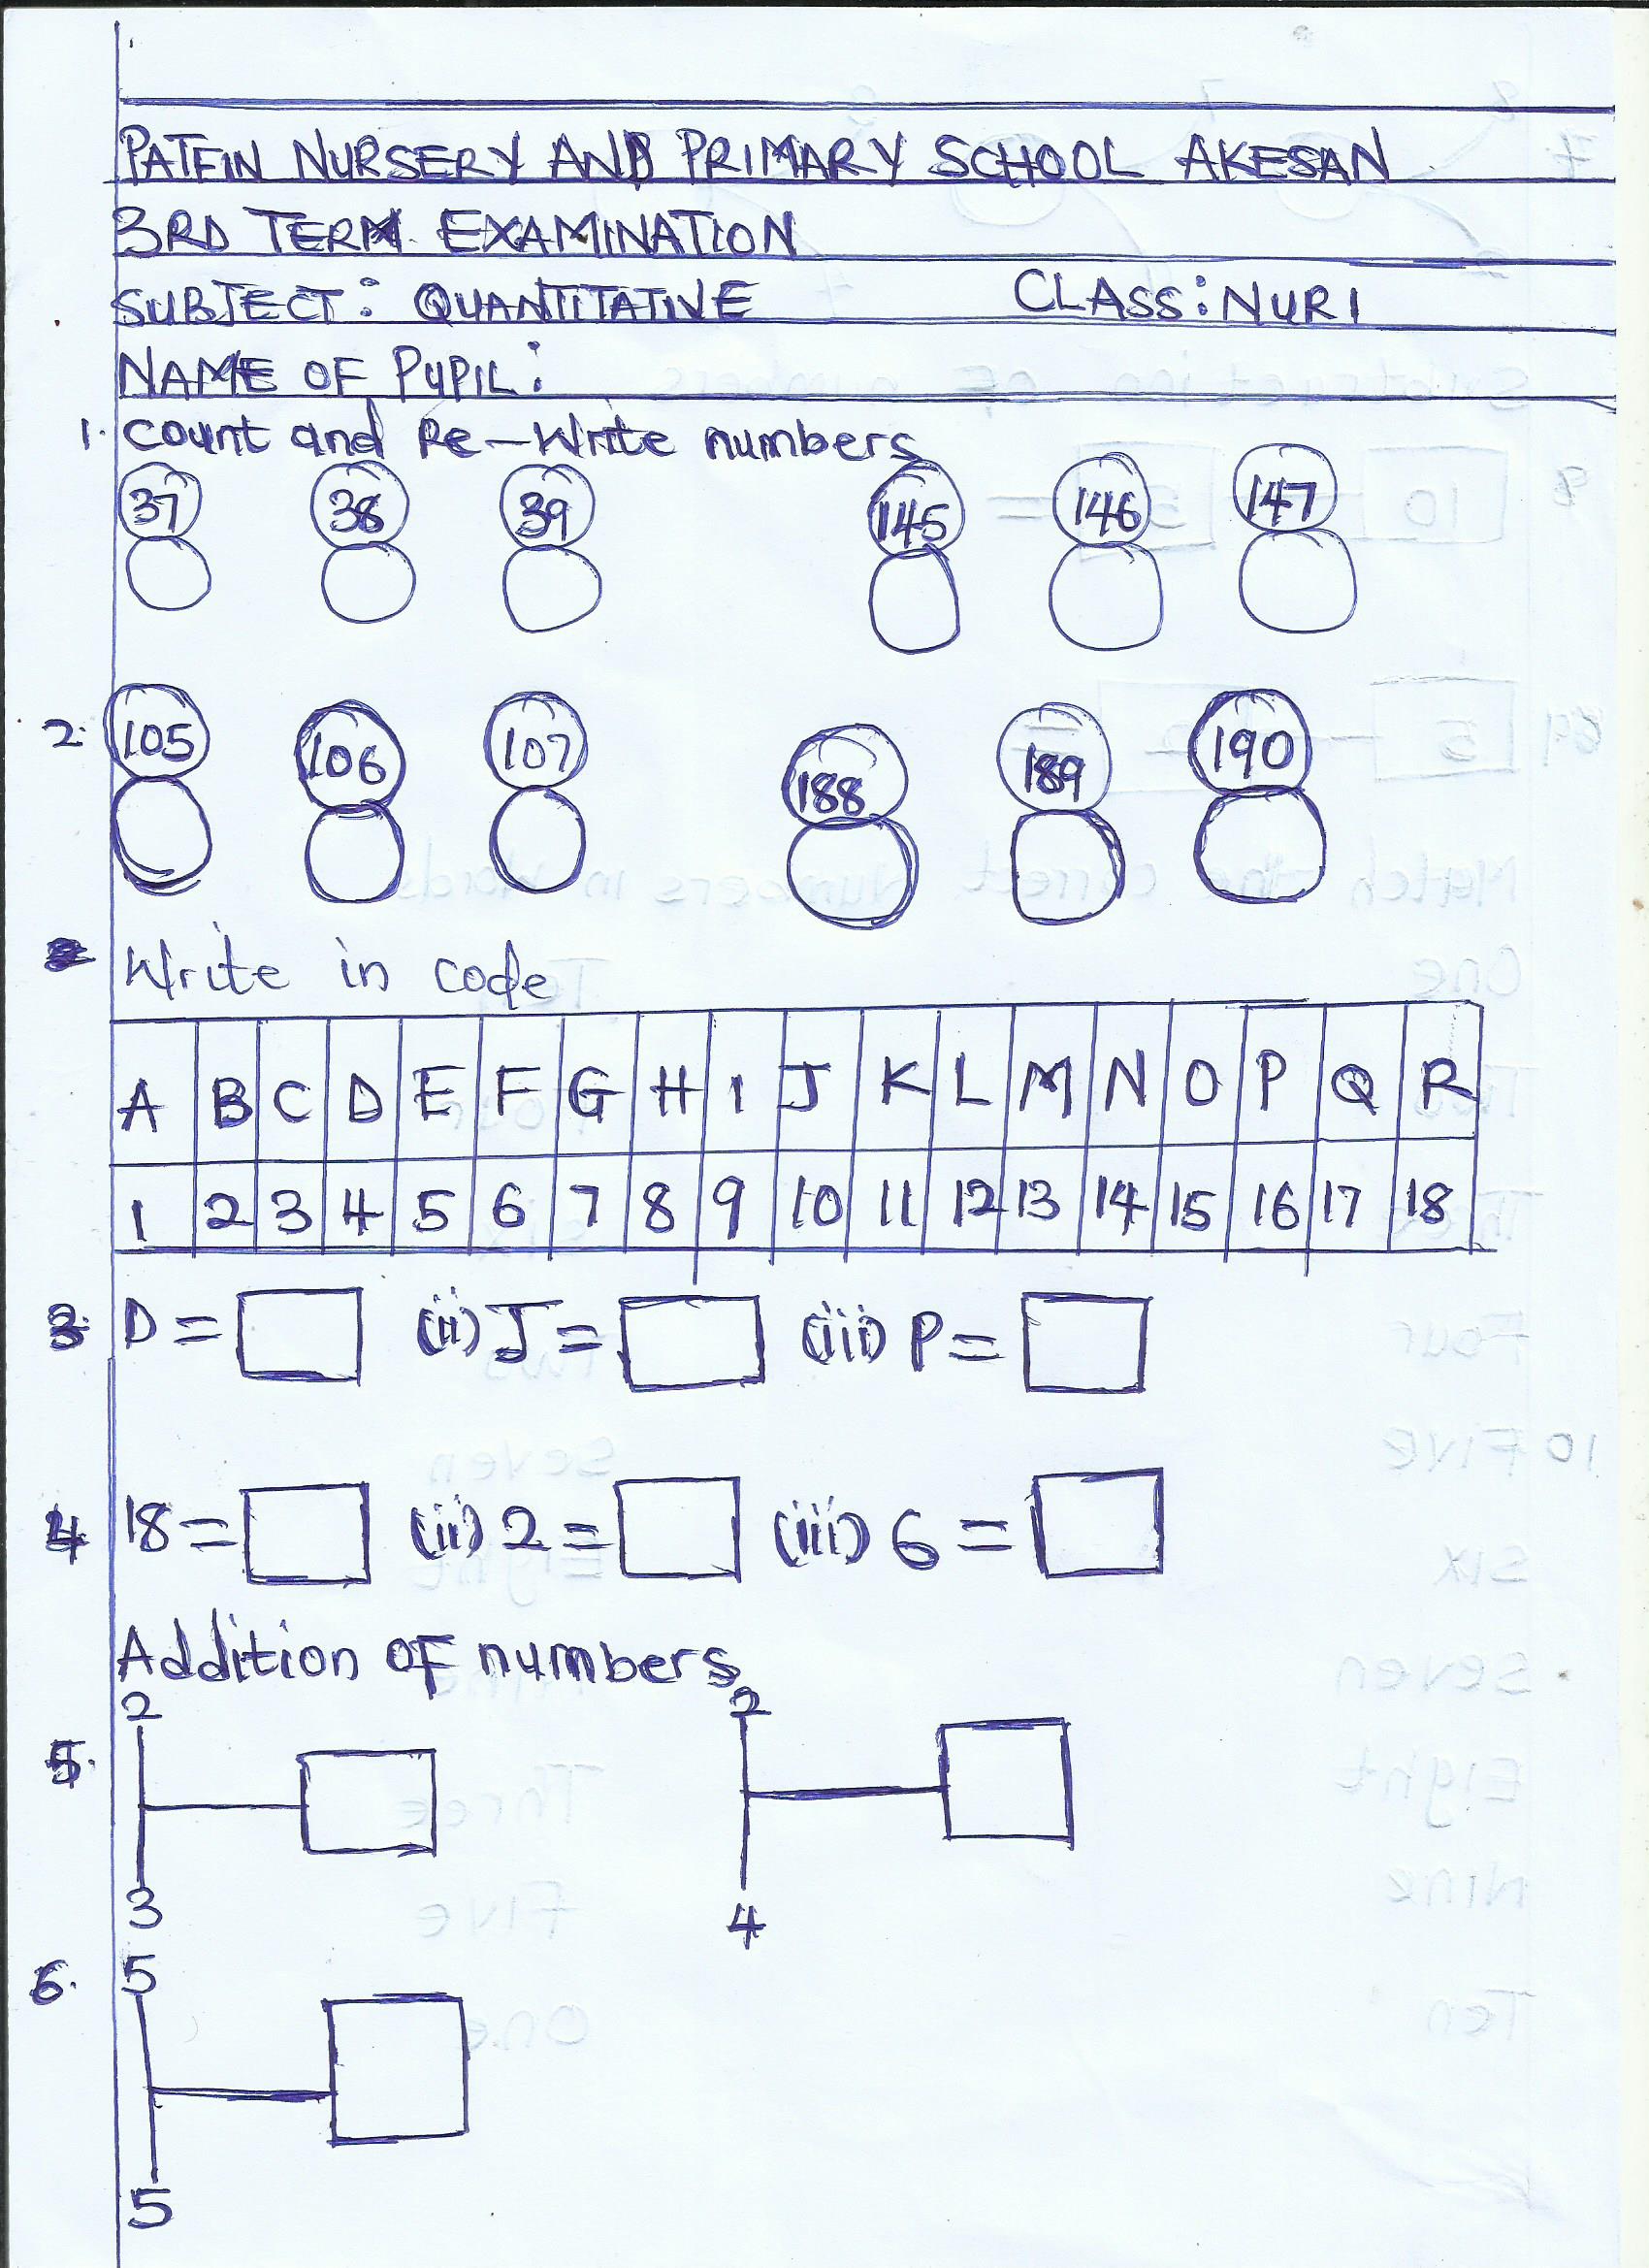 PATFIN NURSERY AND PRIMARY SCHOOL AKESAN
3RD TERM EXAMINATION
SUBJECT: QUANTITATIVE CLASS: NUR 1
NAME OF PUPIL:
1. Count and Re-Write numbers
37 38 39 145 146 147
2. 105 106 107 188 189 190
Write in code
A B C D E F G H I J K L M N O P Q R
1 2 3 4 5 6 7 8 9 10 11 12 13 14 15 16 17 18
3. D = (ii) J = (iii) P =
4 18 = (ii) 2 = (iii) 6 =
Addition of numbers
2 2
5.
3 4
6. 5
5